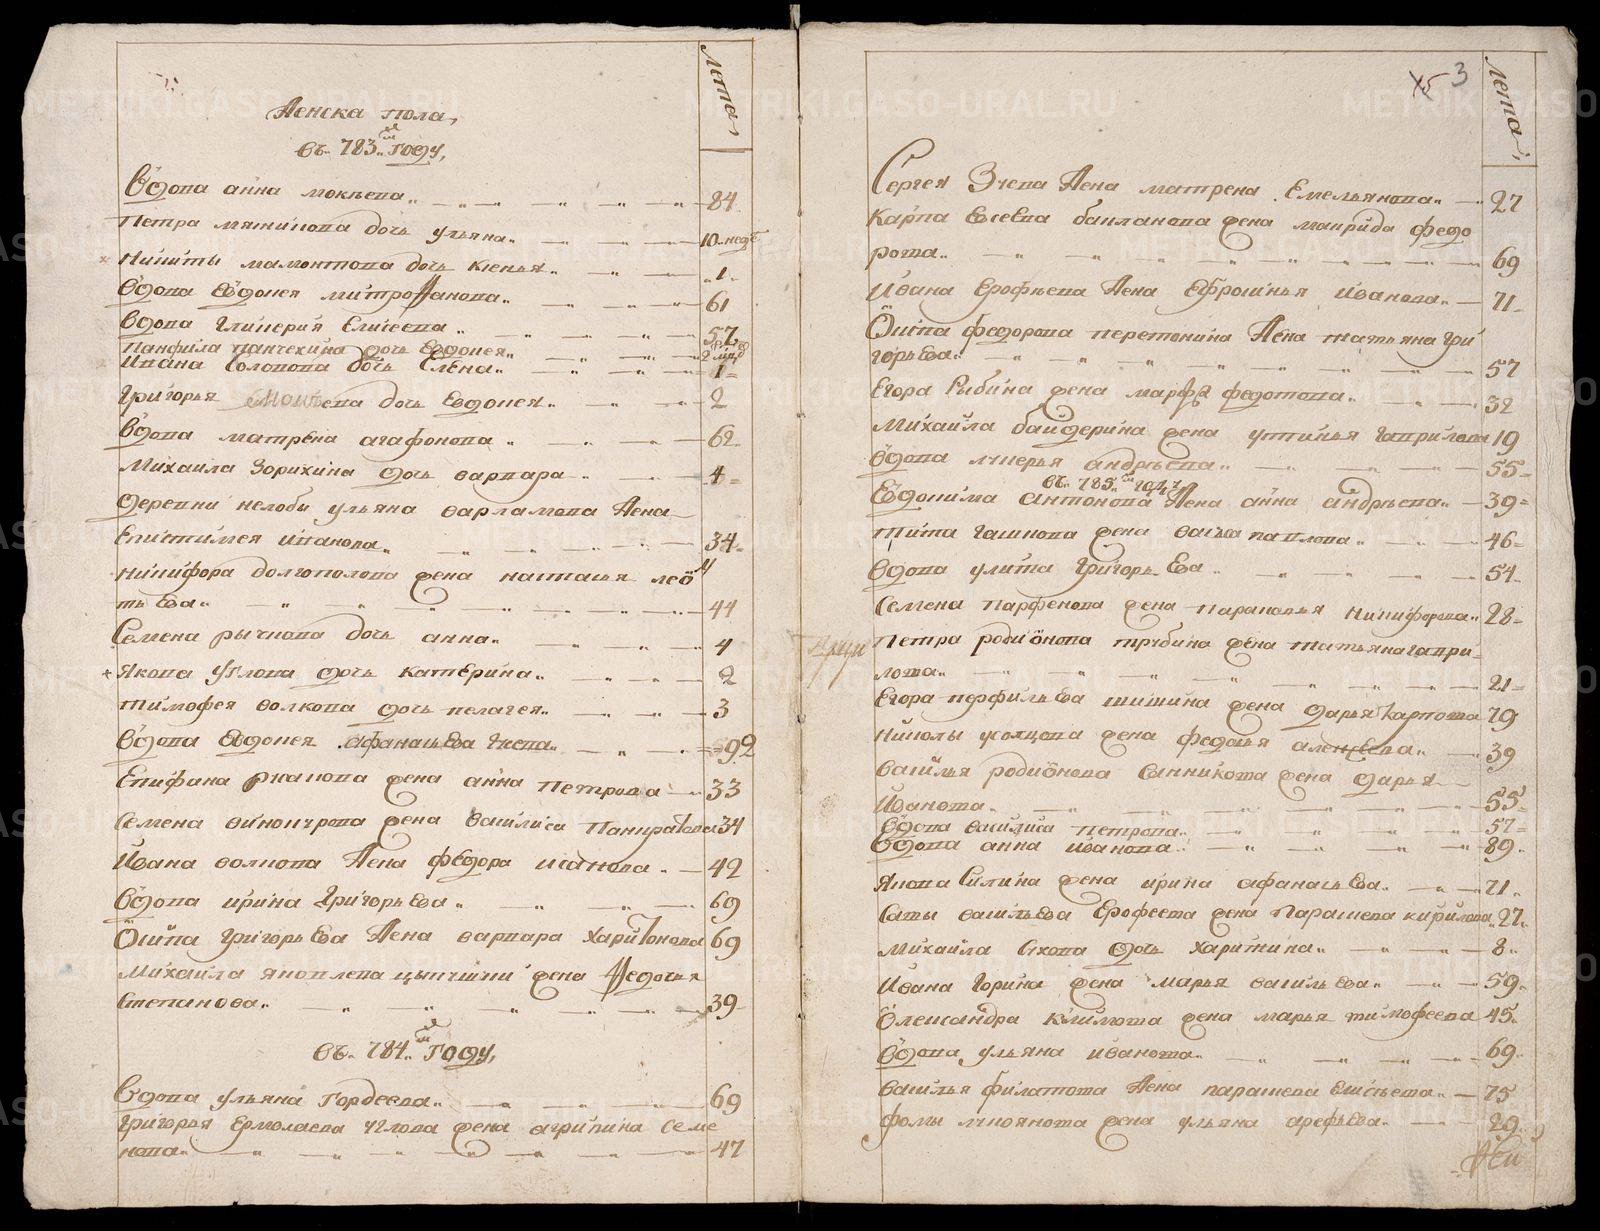 лета
Женска пола,
въ 783м году,
Вдова анна мокѣева 84
Петра мякишова дочь ульяна 10 неде
Никиты мамонтова дочь ксенья 1
Вдова Евдокея митрофанова 61
Вдова Гликерия Елисеева 57
Панфила дочь Евдокея 2
Ивана Солопова дочь Елена 1
Григорья дочь Евдокея 2
Вдова матрена агафонова 62
Михаила Зорихина дочь варвара 4
деревни ульяна варламова жена
Епистимея иванова 34
Никифора долгополова жена настасья леон
тьева 44
Семена рычкова дочь анна 4
Якова углова дочь катерина 2
тимофея волкова дочь пелагея 3
Вдова Евдокея афанасьева 92
Епифана жена анна петрова 33
Семена жена василиса Панкратова 34
Ивана волкова жена федора иванова 42
Вдова ирина Григорьева 69
Осипа Григорьева жена варвара Харитонова 69
Михаила яковлева жена Федосья
Степанова 39
въ 784м году,
Вдова ульяна гордеева 69
Григорья Ермолаева углова жена агрипина Семе
нова 47
3
лета
Сергея Зуева жена матрена Емельянова 27
Карпа Евсеева балланова жена маврида федо
рова 69
Ивана Ерофѣева жена Ефросинья иванова 71
Осипа федорова жена татьяна гри
горьева 57
Егора Рыбина жена марфа федотова 32
Михаила байдерина жена устинья гаврилова 19
Вдова лукерья андрѣева 55
въ 785м году
Евдокима антонова жена анна андрѣева 39
тита жена васса павлова 46
Вдова улита Григорьева 54
Семена парфенова жена парасковья никифорова 28
Петра родионова трубина жена татьяна гаври-
лова 21
Егора перфильева шишина жена дарья карпова 79
Николы усолцова жена федосья алексеева 39
василья родионова жена дарья
Иванова 55
Вдова василиса петрова 57
Вдова анна иванова 89
Якова Силина жена ирина афанасьева 71
Савы васильева Ерофеева жена Парасковья кирилова 27
михаила дочь харитина 8
Ивана Горина жена марья васильева 59
Олександра климова жена марья тимофеева 45
Вдова ульяна иванова 69
василья филатова жена 75
фомы жена ульяна арефьева 29